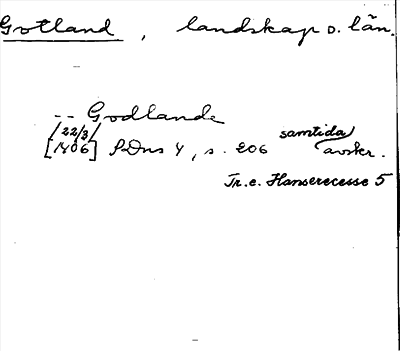 Gotland, landskap o. län.
-- Godlande
/22/3/
[1406] SDns 4, s. 206 samtida avskr.
Tr. e. Hanserecesse 5